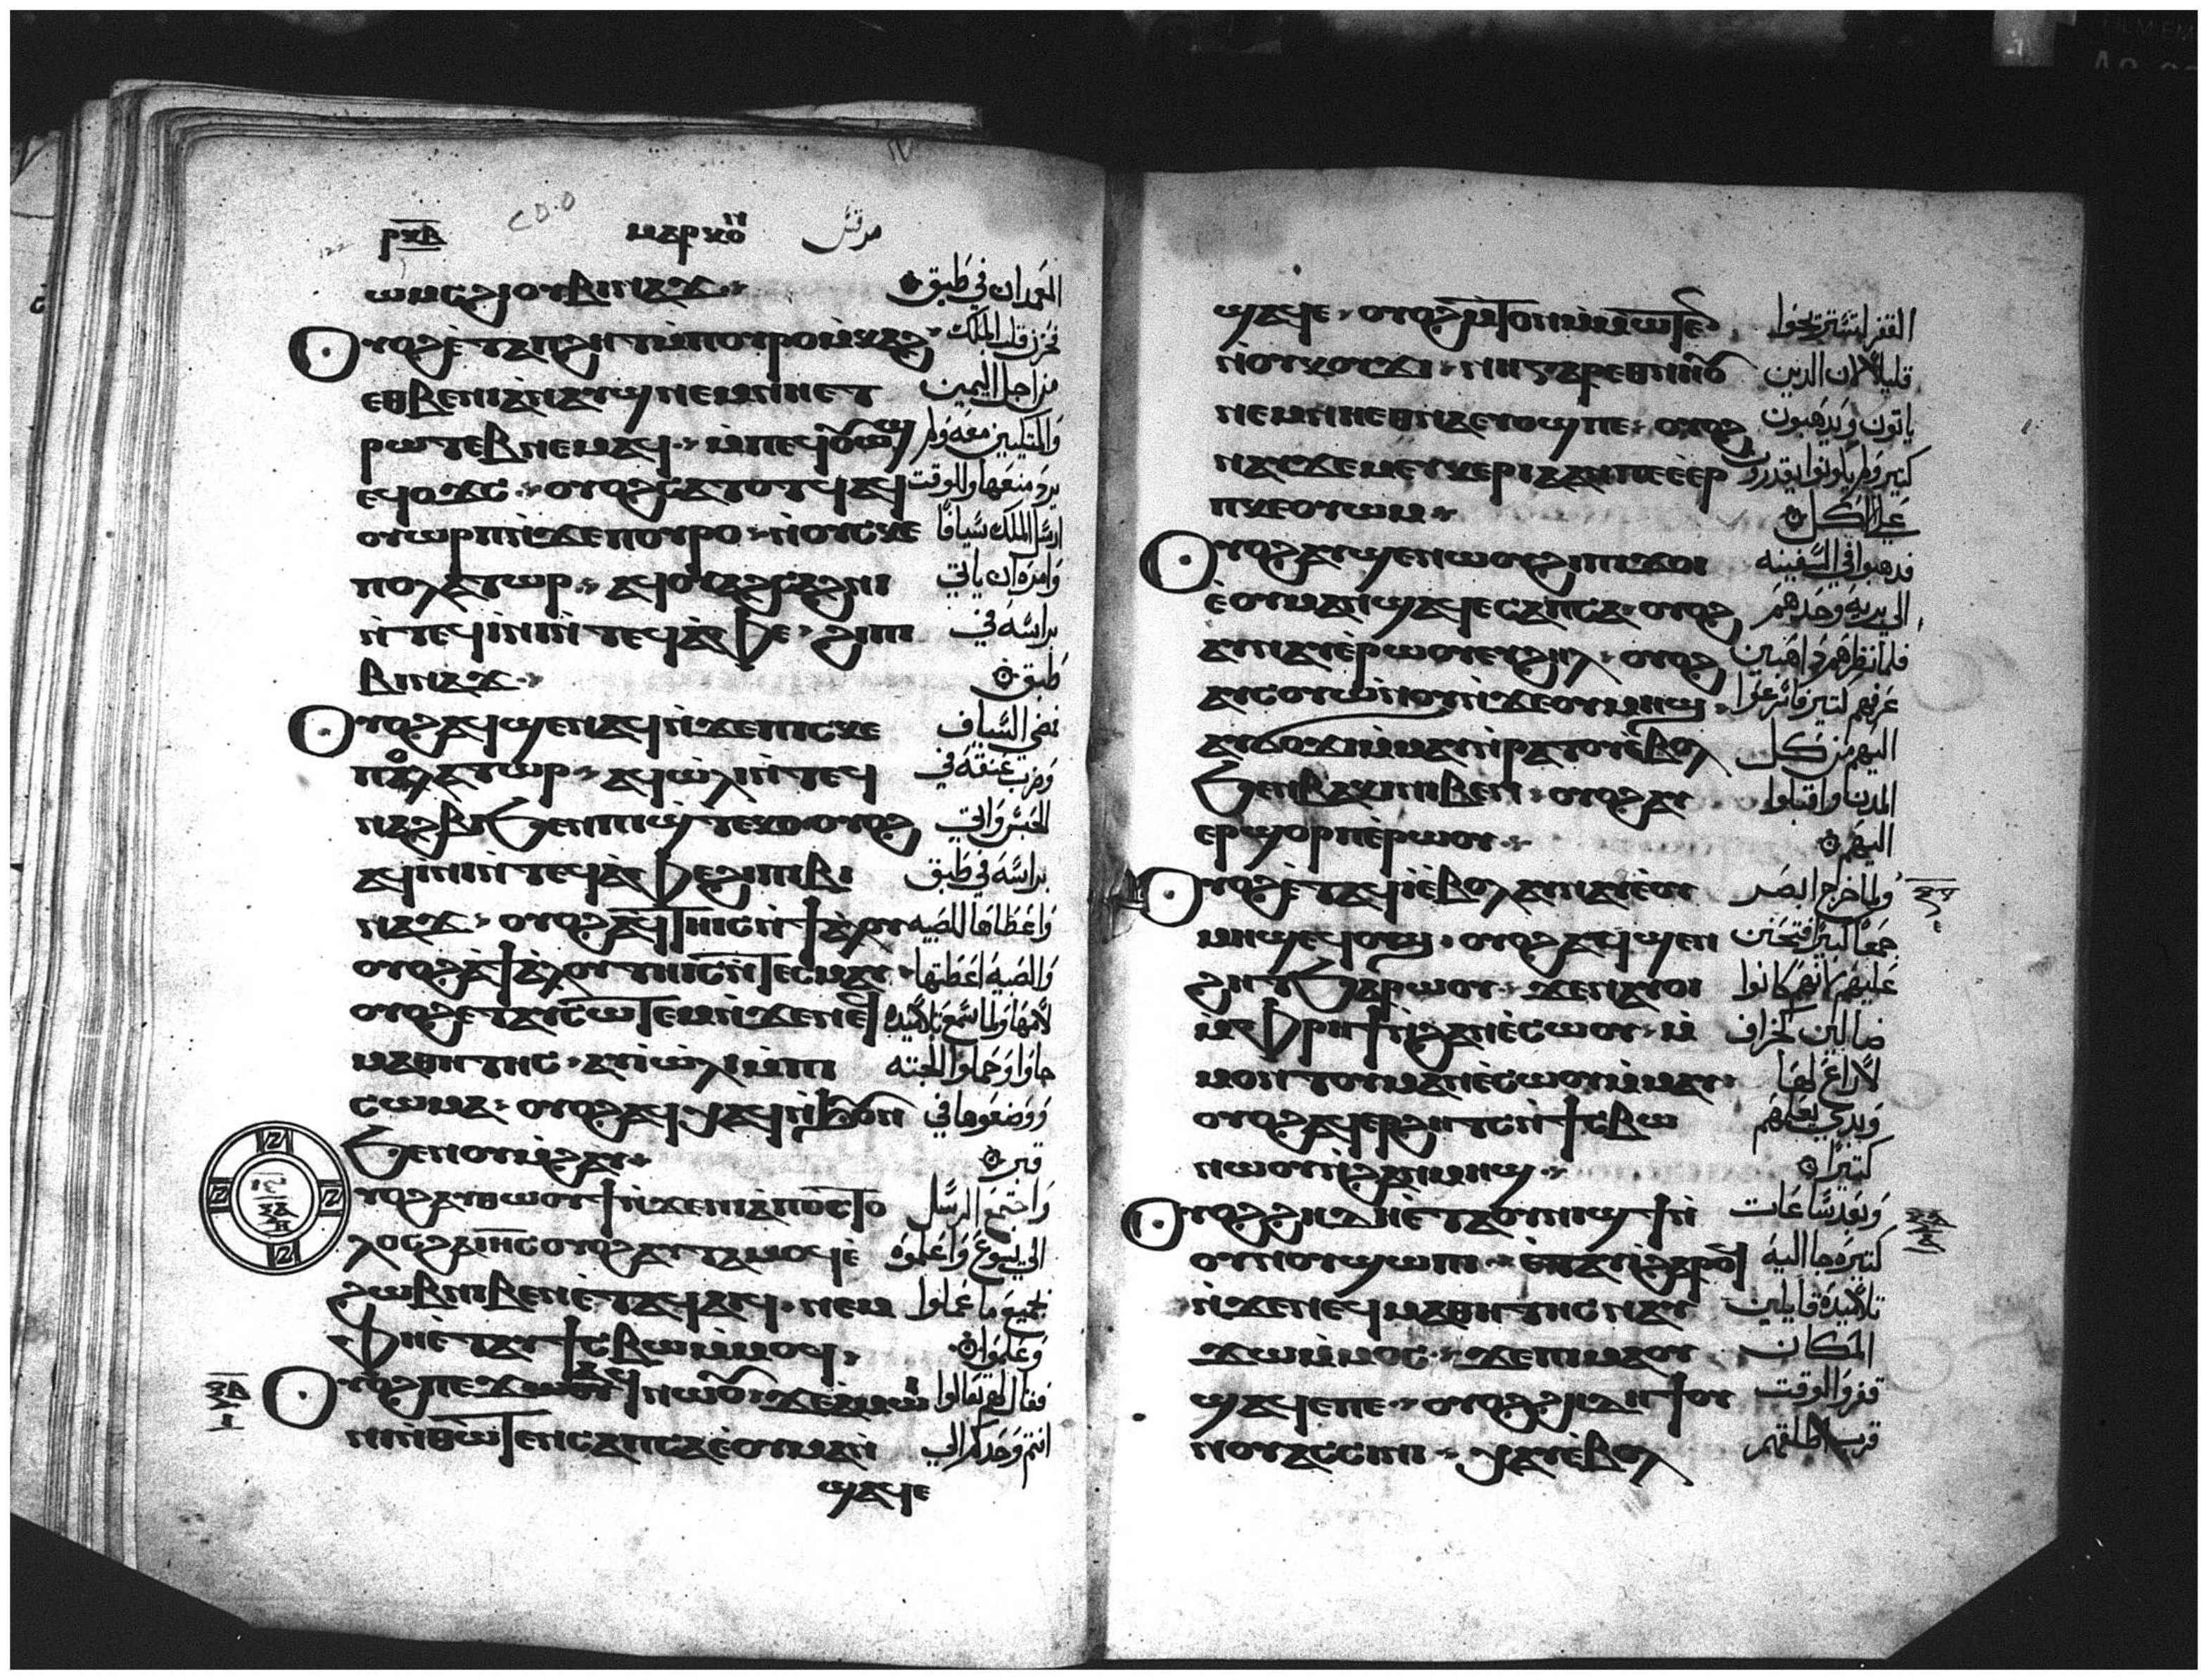 ⲣⲕⲃ ⲙⲁⲣⲕⲟⲛ مرقس
ⲱⲙⲥ ϩⲓ ⲟⲩⲃⲓⲛⲁϫ المعمدان في طبق
ⲟⲩⲟϩ ⲉⲧⲁ ⲡϩⲏⲧ ⲙⲡⲟⲩⲣⲟ ⲙⲕⲁϩ فحزن قلب الملك
ⲉⲑⲃⲉ ⲛⲓⲁⲛⲁⲩϣ ⲛⲉⲙ ⲛⲏⲉⲧ من اجل اليمين
ⲣⲱⲧⲉⲃ ⲛⲉⲙⲁϥ ⲙⲡⲉϥⲟⲩⲱϣ والمتكيين معه ولم
ⲉϥⲟϫⲥ ⲟⲩⲟϩ ⲥⲁⲧⲟⲧϥ ⲁϥ يرد منعها وللوقت
ⲟⲩⲱⲣⲡ ⲛϫⲉ ⲡⲟⲩⲣⲟ ⲛⲟⲩⲥⲡⲉ ارسل الملك سيافا
ⲕⲟⲩⲗⲁⲧⲱⲣ ⲁϥⲟⲩⲁϩⲥⲁϩⲛⲓ وامره ان ياتي
ⲛⲧⲉϥⲓⲛⲓ ⲛⲧⲉϥⲁⲫⲉ ϩⲓ ⲡⲓ براسه في
ⲃⲓⲛⲁϫ طبق
ⲟⲩⲟϩ ⲁϥϣⲉⲛⲁϥ ⲛϫⲉ ⲡⲓⲥⲡⲉ فمضي السياف
ⲁϥⲱⲗⲓ ⲛⲧⲉϥ وضرب عنقه في
ⲛⲁϩⲃⲓ ϧⲉⲛ ⲡⲓϣⲧⲉⲕⲟ ⲟⲩⲟϩ الحبس واتي
ⲁϥⲓⲛⲓ ⲛⲧⲉϥⲁⲫⲉ ϩⲓ ⲡⲓⲃⲓ براسه في طبق
ⲛⲁϫ ⲟⲩⲟϩ ⲁϥⲧⲏⲓⲥ ⲛϯⲁⲗⲟⲩ واعطاها للصبيه
ⲟⲩⲟϩ ⲁ ϯⲁⲗⲟⲩ ⲧⲏⲓⲥ ⲛⲧⲉⲥⲙⲁⲩ والصبيه اعطتها
ⲟⲩⲟϩ ⲉⲧⲁⲩⲥⲱⲧⲉⲙ ⲛϫⲉ ⲛⲉϥ لامها ولما سمع تلاميذه
ⲙⲁⲑⲏⲧⲏⲥ ⲁⲩⲓ ⲁⲩⲱⲗⲓ ⲙⲡⲓ جاوا وحملوا الجثه
ⲥⲱⲙⲁ ⲟⲩⲟϩ ⲁⲩⲭⲁϥ ووضعوها في
ϧⲉⲛ ⲟⲩⲙϩⲁⲩ قبر
ⲟⲩⲟϩ ⲁⲩⲑⲱⲟⲩϯ ⲛϫⲉ ⲛⲓⲁⲡⲟⲥⲧⲟ واجتمع الرسل
ⲗⲟⲥ ϩⲁ ⲓⲏⲥ ⲟⲩⲟϩ ⲁⲩⲧⲁⲙⲟϥ ⲉ الي يسوع واعلموه
ϩⲱⲃ ⲛⲓⲃⲉⲛ ⲉⲧⲁⲩⲁⲓⲧⲟⲩ ⲛⲉⲙ بجميع ما عملوا
ⲫⲏ ⲉⲧⲁⲩϯⲥⲃⲱ ⲙⲙⲟϥ وعلموا
ⲟⲩⲟϩ ⲡⲉϫⲁϥ ⲛⲱⲟⲩ ϫⲉ ⲁⲙⲱ فقال لهم تعالوا
ⲓⲛⲓ ⲛⲑⲱⲧⲉⲛ ⲥⲁⲡⲥⲁ ⲉⲟⲩⲙⲁⲛ انتم وحدكم الي
ϣⲁϥⲉ
ϣⲁϥⲉ ⲟⲩⲟϩ ⲙⲧⲟⲛ ⲙⲙⲱⲧⲉⲛ القفر لتستريحوا
ⲛⲟⲩⲕⲟⲩϫⲓ ⲛⲏ ⲅⲁⲣ ⲉⲑⲛⲏⲟⲩ قليلا لان الذين
ⲛⲉⲙ ⲛⲏ ⲉⲑⲛⲁ ⲛⲉ ⲟⲩⲟϣ ⲡⲉ ⲟⲩⲟϩ ياتون ويدهبون
ⲛⲁⲩϫⲉⲙ ⲉⲩⲕⲉⲣⲓⲁ ⲁⲛ ⲡⲉ ⲉⲉⲣ كتير ولم يكونوا يقدرون
ⲡⲕⲉⲟⲩⲱⲙ علي الاكل
ⲟⲩⲟϩ ⲁⲩϣⲉⲛⲱⲟⲩ ϩⲓ ⲡⲓϫⲟⲓ فدهبوا في السفينه
ⲉⲟⲩⲙⲁⲛϣⲁϥⲉ ⲥⲁⲡⲥⲁ ⲟⲩⲟϩ الي بريه وحدهم
ⲁⲩⲛⲁⲩ ⲉⲣⲱⲟⲩ ⲉⲩϩⲏⲗ ⲟⲩⲟϩ فلما نظرهم داهبين
ⲁⲩⲥⲟⲩⲱⲛⲟⲩ ⲛϫⲉ ⲟⲩⲙⲏϣ عرفهم كتير فاسرعوا
ⲁⲩϭⲟϫⲓ ⲙⲙⲁⲛⲣⲁⲧⲟⲩ ⲉⲃⲟⲗ اليهم من كل
ϧⲉⲛ ⲃⲁⲕⲓ ⲛⲓⲃⲉⲛ ⲟⲩⲟϩ ⲁⲩ المدن واقبلوا
ⲉⲣϣⲟⲣⲡ ⲉⲣⲱⲟⲩ اليهم
ⲟⲩⲟϩ ⲉⲧⲁϥⲓ ⲉⲃⲟⲗ ⲁϥⲛⲁⲩ ⲉⲟⲩ ولما خرج ابصر
ⲙⲏϣ ⲉϥⲟϣ ⲟⲩⲟϩ ⲁϥϣⲉⲛ جمعا كتيرا فتحنن
ϩⲏⲧ ϧⲁⲣⲱⲟⲩ ϫⲉ ⲛⲁⲩⲟⲓ عليهم لانهم كانوا
ⲙⲫⲣⲏϯ ⲛϩⲁⲛⲉⲥⲱⲟⲩ ⲙ ضالين كخراف
ⲙⲟⲛ ⲧⲟⲩ ⲙⲁⲛⲉⲥⲱⲟⲩ ⲙⲙⲁⲩ لا راع لها
ⲟⲩⲟϩ ⲁϥⲉⲣϩⲏⲧⲥ ⲛϯⲥⲃⲱ وبدي يعلمهم
ⲛⲱⲟⲩ ⲛϩⲁⲛⲙⲏϣ كتيرا
ⲟⲩⲟϩ ϩⲏⲇⲏ ⲉⲧⲁ ⲟⲩⲛⲓϣϯ ⲛ وبعد ساعات
ⲟⲩⲛⲟⲩ ϣⲱⲡⲓ ⲉⲧⲁⲩⲓ ϩⲁⲣⲟϥ كتيره جا اليه
ⲛϫⲉ ⲛⲉϥⲙⲁⲑⲏⲧⲏⲥ ⲛⲁⲩ تلاميذه قايلين
ϫⲱ ⲙⲙⲟⲥ ϫⲉ ⲡⲓⲙⲁ ⲟⲩ المكان
ϣⲁϥⲉ ⲡⲉ ⲟⲩⲟϩ ϩⲏⲇⲏ ϯⲟⲩ قفر والوقت
ⲛⲟⲩ ⲁⲥⲥⲓⲛⲓ ⲭⲁⲩ ⲉⲃⲟⲗ قرب اطلقهم